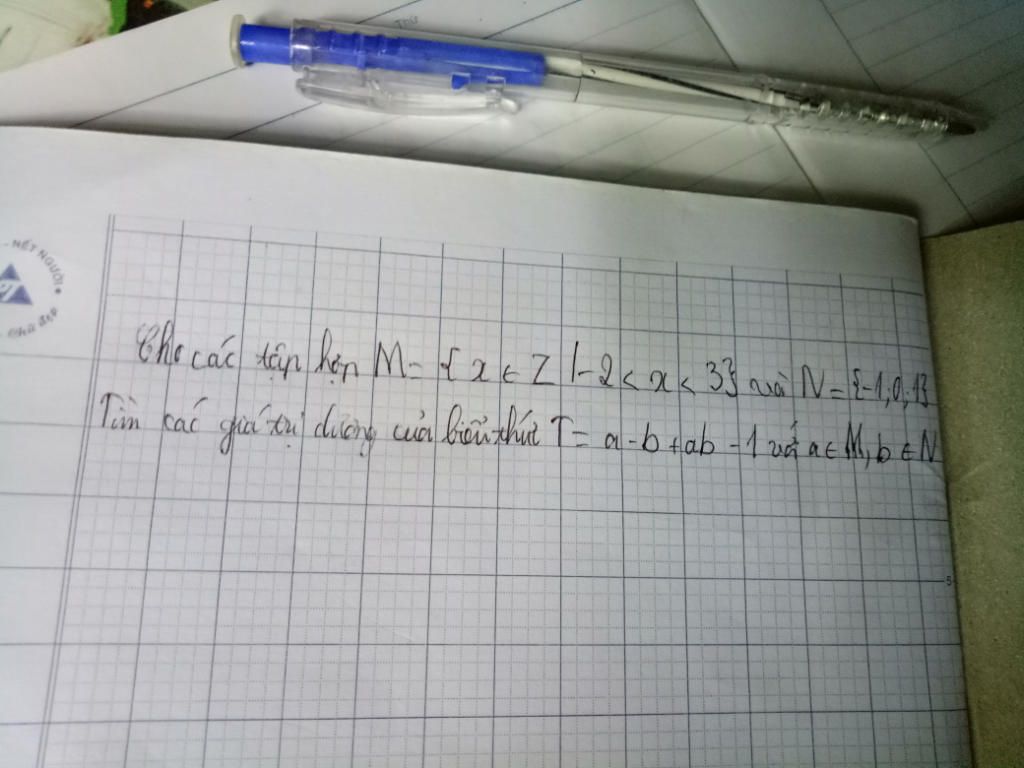 Thứ
- NẾT NGƯỜI •
Chữ đẹp
Cho các tập hợp M = {x ∈ Z |-2 < x < 3} và N = {-1; 0; 1}
Tìm các giá trị dương của biểu thức T = a - b + ab - 1 với a ∈ M, b ∈ N
5